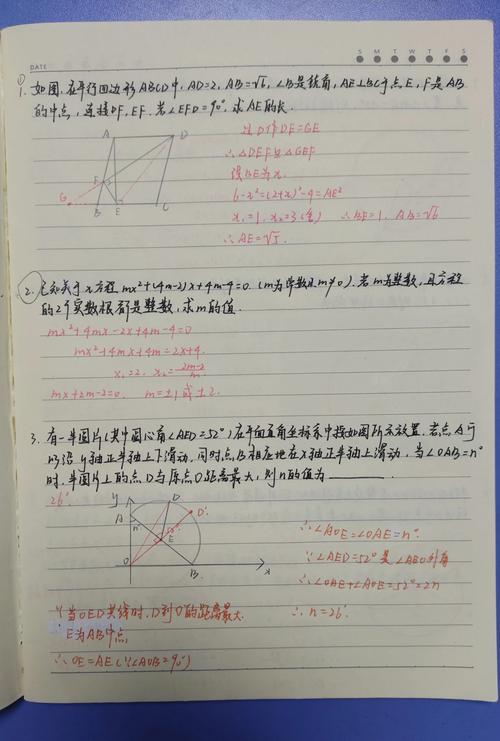 DATE
S M T W T F S
①
1. 如图,在平行四边形ABCD中,AD=2,AB=√6,∠B是锐角,AE⊥BC于点E,F是AB
的中点,连接DF,EF.若∠EFD=90°,求AE的长.
A D
F
G B E C
过D作DF=GE
∴△DEF≌△GEF
设BE为x.
6-x²=(2+x)²-4=AE²
x₁=1, x₂=3(舍) ∴BE=1, AB=√6
∴AE=√5.
2. 已知关于x方程 mx²+(4m-2)x+4m-4=0.(m为常数且m≠0).若m为整数,且方程
的2个实数根都是整数,求m的值.
mx²+4mx-2x+4m-4=0
mx²+4mx+4m=2x+4.
mx+2m-2=0. m=±1或±2.
3. 有一半圆片(其中圆心角∠AED=52°)在平面直角坐标系中按如图所示放置.若点A可
以沿y轴正半轴上下滑动,同时点B相应地在x轴正半轴上滑动,当∠OAB=n°
时,半圆片上的点D与原点O距离最大,则n的值为
26°
y D D'
A n° E
O B x
∴∠AOE=∠OAE=n°
∵∠AED=52°是∠AEO外角
∴∠OAE+∠AOE=52°=2n
∴n=26°
∵当OED共线时,D到O的距离最大.
E为AB中点
∴OE=AE(∵∠AOB=90°)